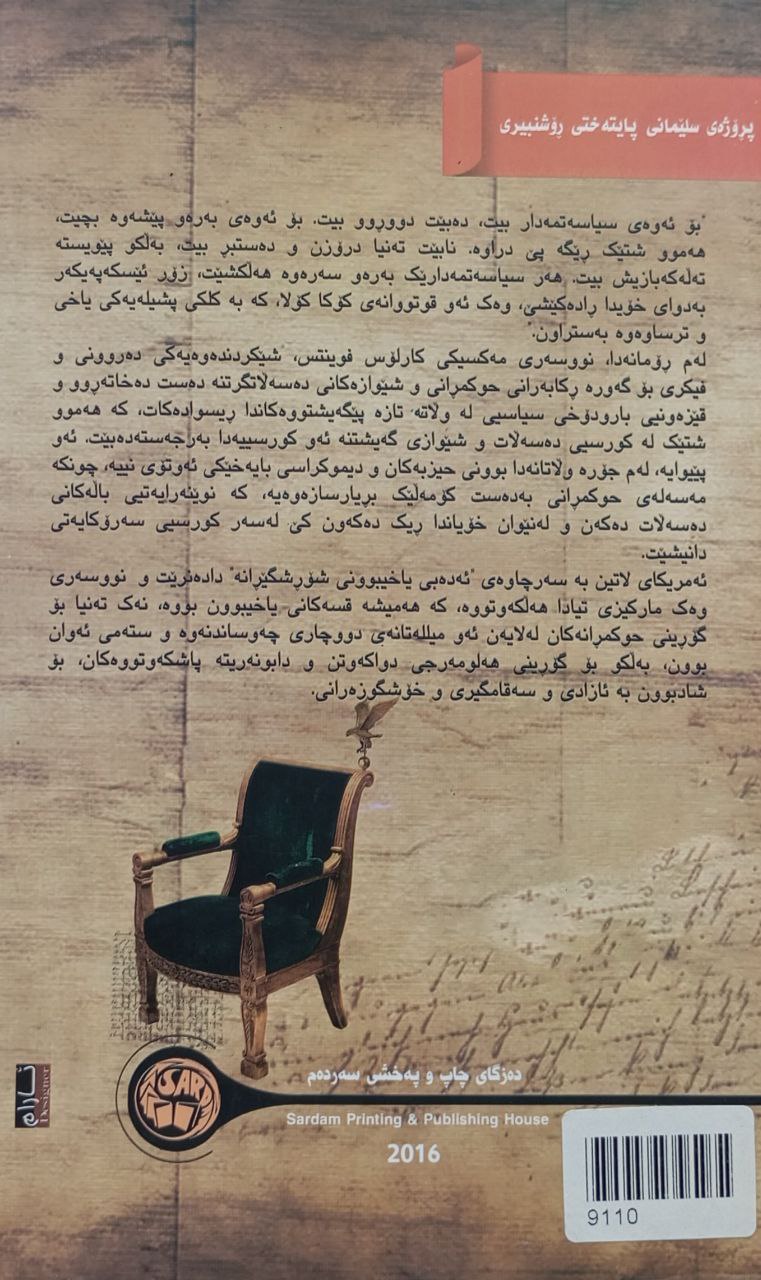 پڕۆژەی سلێمانی پایتەختی ڕۆشنبیری
"بۆ ئەوەی سیاسەتمەدار بیت، دەبێت دووڕوو بیت. بۆ ئەوەی بەرەو پێشەوە بچیت،
هەموو شتێک ڕێگە پێ دراوە. نابێت تەنیا درۆزن و دەستبڕ بیت، بەڵکو پێویستە
تەڵەکەبازیش بیت. هەر سیاسەتمەدارێک بەرەو سەرەوە هەڵکشێت، زۆر ئێسکەپەیکەر
بەدوای خۆیدا ڕادەکێشێ، وەک ئەو قوتووانەی کۆکا کۆلا، کە بە کلکی پشیلەیەکی یاخی
و ترساوەوە بەستراون."
لەم ڕۆمانەدا، نووسەری مەکسیکی کارلۆس فوینتس، شیکردندەوەیەکی دەروونی و
فیکری بۆ گەورە ڕکابەرانی حوکمڕانی و شێوازەکانی دەسەڵاتگرتنە دەست دەخاتەڕوو و
قێزەونیی بارودۆخی سیاسیی لە وڵاتە تازە پێگەیشتووەکاندا ڕیسوادەکات، کە هەموو
شتێک لە کورسیی دەسەڵات و شێوازی گەیشتنە ئەو کورسییەدا بەرجەستەدەبێت. ئەو
پێیوایە، لەم جۆرە وڵاتانەدا بوونی حیزبەکان و دیموکراسی بایەخێکی ئەوتۆی نییە، چونکە
مەسەلەی حوکمڕانی بەدەست کۆمەڵێک بڕیارسازەوەیە، کە نوێنەرایەتیی باڵەکانی
دەسەڵات دەکەن و لەنێوان خۆیاندا ڕیک دەکەون کێ لەسەر کورسیی سەرۆکایەتی
دانیشێت.
ئەمریکای لاتین بە سەرچاوەی "ئەدەبی یاخیبوونی شۆڕشگێڕانە" دادەنرێت و نووسەری
وەک مارکیزی تیادا هەڵکەوتووە، کە هەمیشە قسەکانی یاخیبوون بووە، نەک تەنیا بۆ
گۆڕینی حوکمڕانەکان لەلایەن ئەو میللەتانەی دووچاری چەوساندنەوە و ستەمی ئەوان
بوون، بەڵکو بۆ گۆڕینی هەلومەرجی دواکەوتن و دابونەریتە پاشکەوتووەکان، بۆ
شادبوون بە ئازادی و سەقامگیری و خۆشگوزەرانی.
دەزگای چاپ و پەخشی سەردەم
SARD
Sardam Printing & Publishing House
2016
ئارام
Designer
9110